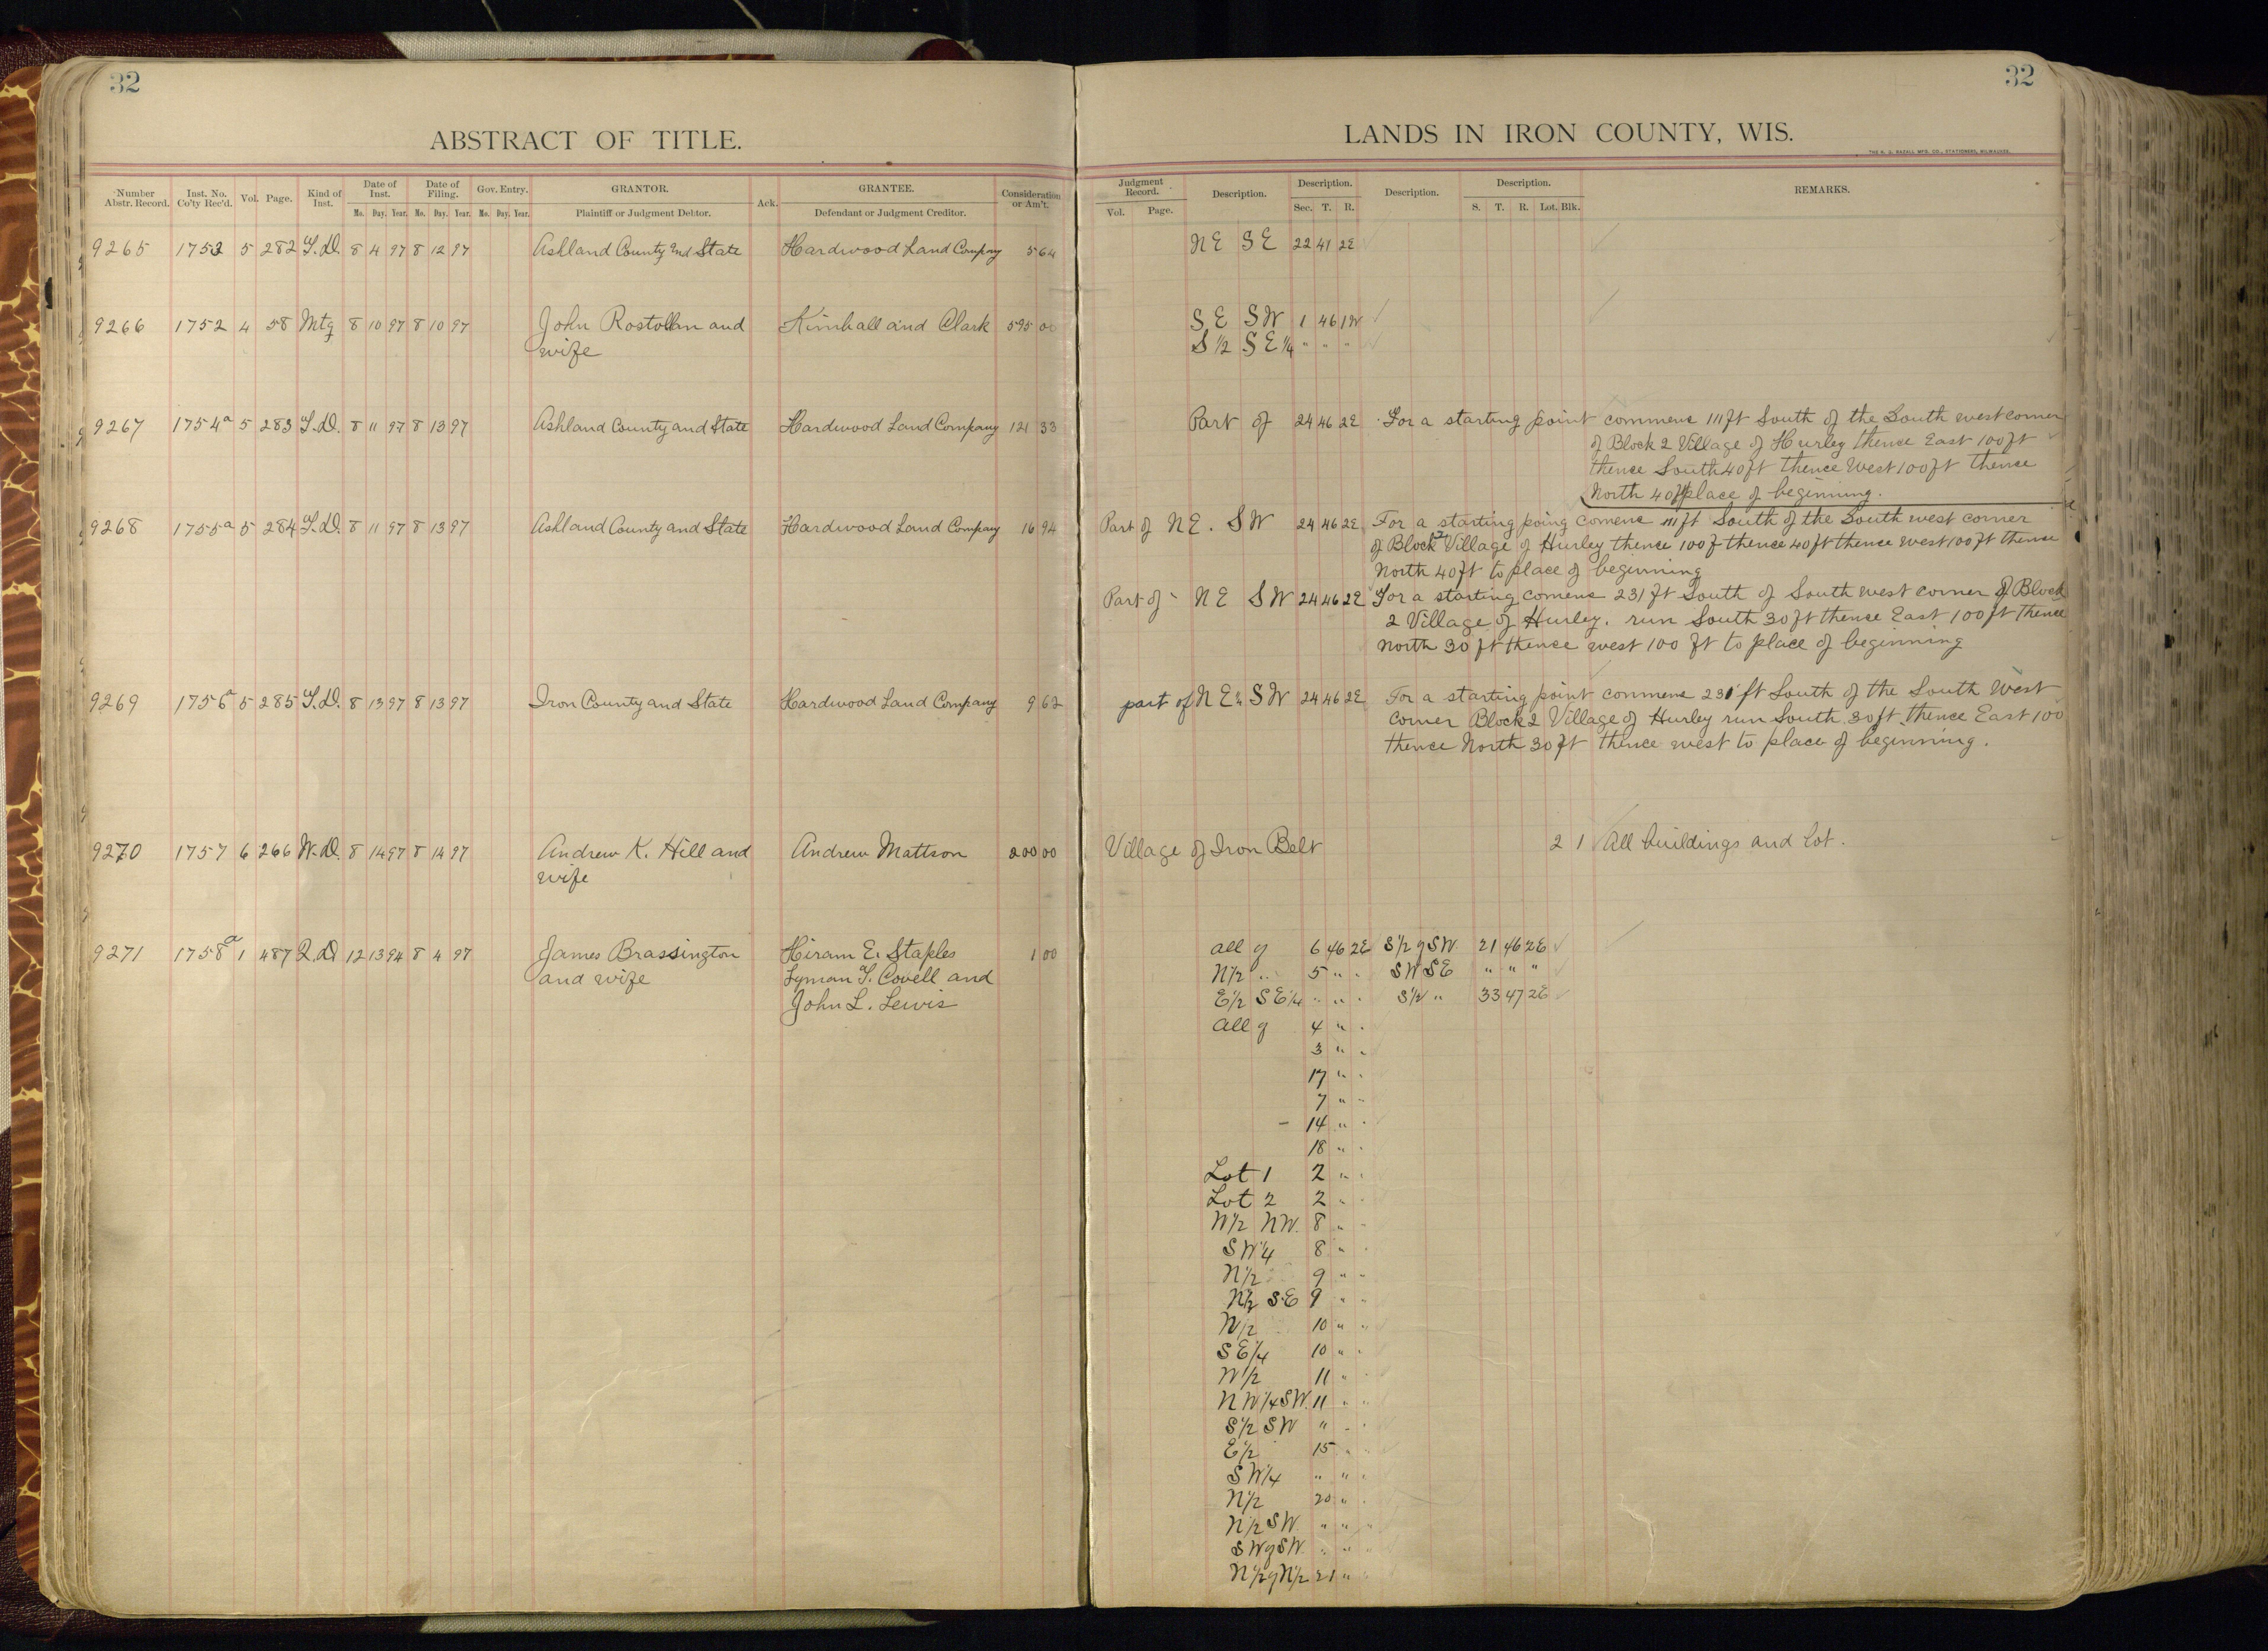 32
ABSTRACT OF TITLE.
Number Abstr. Record. Inst. No. Co'ty Rec'd. Vol. Page. Kind of Inst. Date of Inst. Date of Filing. Gov. Entry. GRANTOR. Ack. GRANTEE. Consideration or Am't.
Mo. Day. Year. Mo. Day. Year. Mo. Day. Year. Plaintiff or Judgment Debtor. Defendant or Judgment Creditor.
9265 1753 5 282 T.D. 8 4 97 8 12 97 Ashland County and State Hardwood Land Company 5 64
9266 1752 4 58 Mtg 8 10 97 8 10 97 John Rostollan and Kimball and Clark 595 00
wife
9267 1754a 5 283 T.D. 8 11 97 8 13 97 Ashland County and State Hardwood Land Company 121 33
9268 1755a 5 284 T.D. 8 11 97 8 13 97 Ashland County and State Hardwood Land Company 16 94
9269 1756a 5 285 T.D. 8 13 97 8 13 97 Iron County and State Hardwood Land Company 9 62
9270 1757 6 266 W.D. 8 14 97 8 14 97 Andrew K. Hill and Andrew Mattson 200 00
wife
9271 1758a 1 487 Q.D 12 13 94 8 4 97 James Brassington Hiram E. Staples 1 00
and wife Lyman T. Covell and
John L. Lewis
32
LANDS IN IRON COUNTY, WIS.
THE H. G. RAZALL MFG. CO., STATIONERS, MILWAUKEE.
Judgment Record. Description. Description. Description. Description. REMARKS.
Vol. Page. Sec. T. R. S. T. R. Lot. Blk.
NE SE 22 41 2E
SE SW 1 46 1W
S 1/2 SE 1/4 " " "
Part of 24 46 2E For a starting point commence 111 ft South of the South west corner
of Block 2 Village of Hurley thence East 100 ft
thence South 40 ft thence West 100 ft thence
North 40 ft place of beginning.
Part of NE. SW 24 46 2E For a starting poing comence 111 ft South of the South west corner
of Block 2 Village of Hurley thence 100 f thence 40 ft thence west 100 ft thence
North 40 ft to place of beginning
Part of NE SW 24 46 2E For a starting comence 231 ft South of South west corner of Block
2 Village of Hurley. run South 30 ft thence East 100 ft thence
North 30 ft thence west 100 ft to place of beginning
part of NE SW 24 46 2E For a starting point commence 231 ft South of the South West
corner Block 2 Village of Hurley run South 30 ft thence East 100
thence North 30 ft thence west to place of beginning.
Village of Iron Belt 2 1 All buildings and lot.
all of 6 46 2E S 1/2 of SW. 21 46 2E
N 1/2 " 5 " " SW SE " " "
E 1/2 SE 1/4 " " " S 1/2 " 33 47 2E
all of 4 " "
3 " "
17 " "
7 " "
14 " "
18 " "
Lot 1 2 " "
Lot 2 2 " "
N 1/2 NW. 8 " "
SW 1/4 8 " "
N 1/2 9 " "
N 1/2 SE 9 " "
N 1/2 10 " "
SE 1/4 10 " "
N 1/2 11 " "
NW 1/4 SW. 11 " "
S 1/2 SW " " "
E 1/2 15 " "
SW 1/4 " " "
N 1/2 20 " "
N 1/2 SW. " " "
SW of SW. " " "
N 1/2 of N 1/2 21 " "